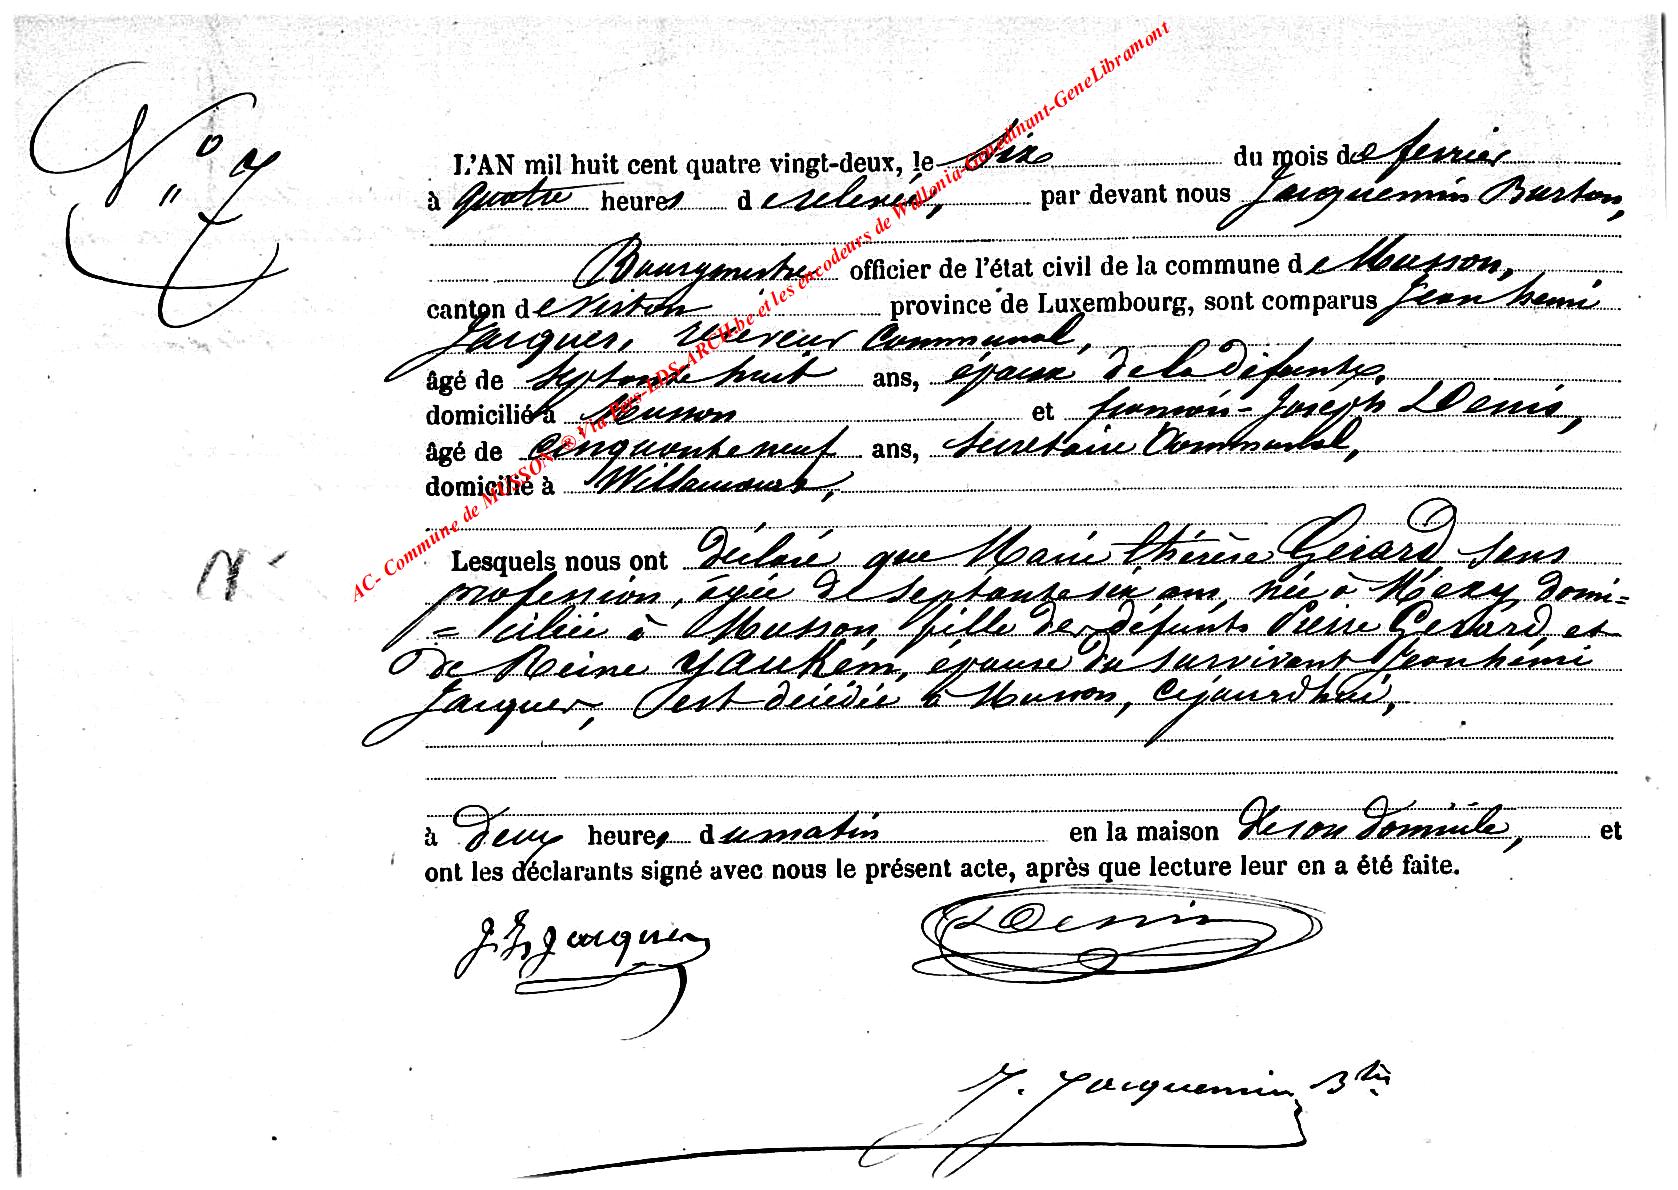 N° 7
L'AN mil huit cent quatre vingt-deux, le six du mois de fevrier
à quatre heures de relevée, par devant nous Jacquemin Burton,
Bourgmestre officier de l'état civil de la commune de Musson,
canton de Virton province de Luxembourg, sont comparus Jean henri
Jacques, receveur Communal,
âgé de septante huit ans, époux de la défunte,
domicilié à Musson et francois-Joseph Denis,
âgé de cinquante neuf ans, secretaire Communal,
domicilié à Willancourt,
Lesquels nous ont déclaré que Marie thérèse Gerard sans
profession, âgée de septante six ans, née à Mexy domi=
=ciliée à Musson fille des défunts Pierre Gerard, et
de Reine, épouse du survivant Jean henri
Jacques, est décédée à Musson, cejourd'hui,
à deux heures du matin en la maison de son domicile, et
ont les déclarants signé avec nous le présent acte, après que lecture leur en a été faite.
J. H. Jacques Denis
J. Jacquemin Btn
AC- Commune de MUSSON ® Via Pers-LDS-ARCH.be et les encodeurs de Wallonia-Genedinant-GeneLibramont